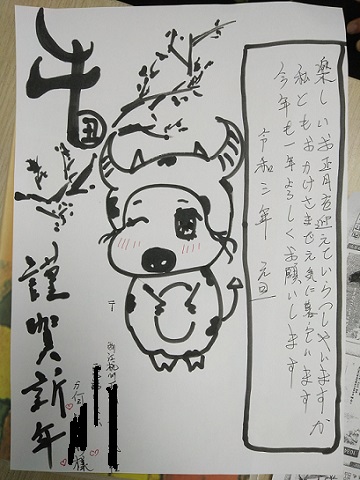 楽しいお正月を迎えていらっしゃいますか
私どもおかげさまで元気に暮しています
今年も一年よろしくお願いします
令和三年 元旦
牛
丑
謹賀新年
〒
様